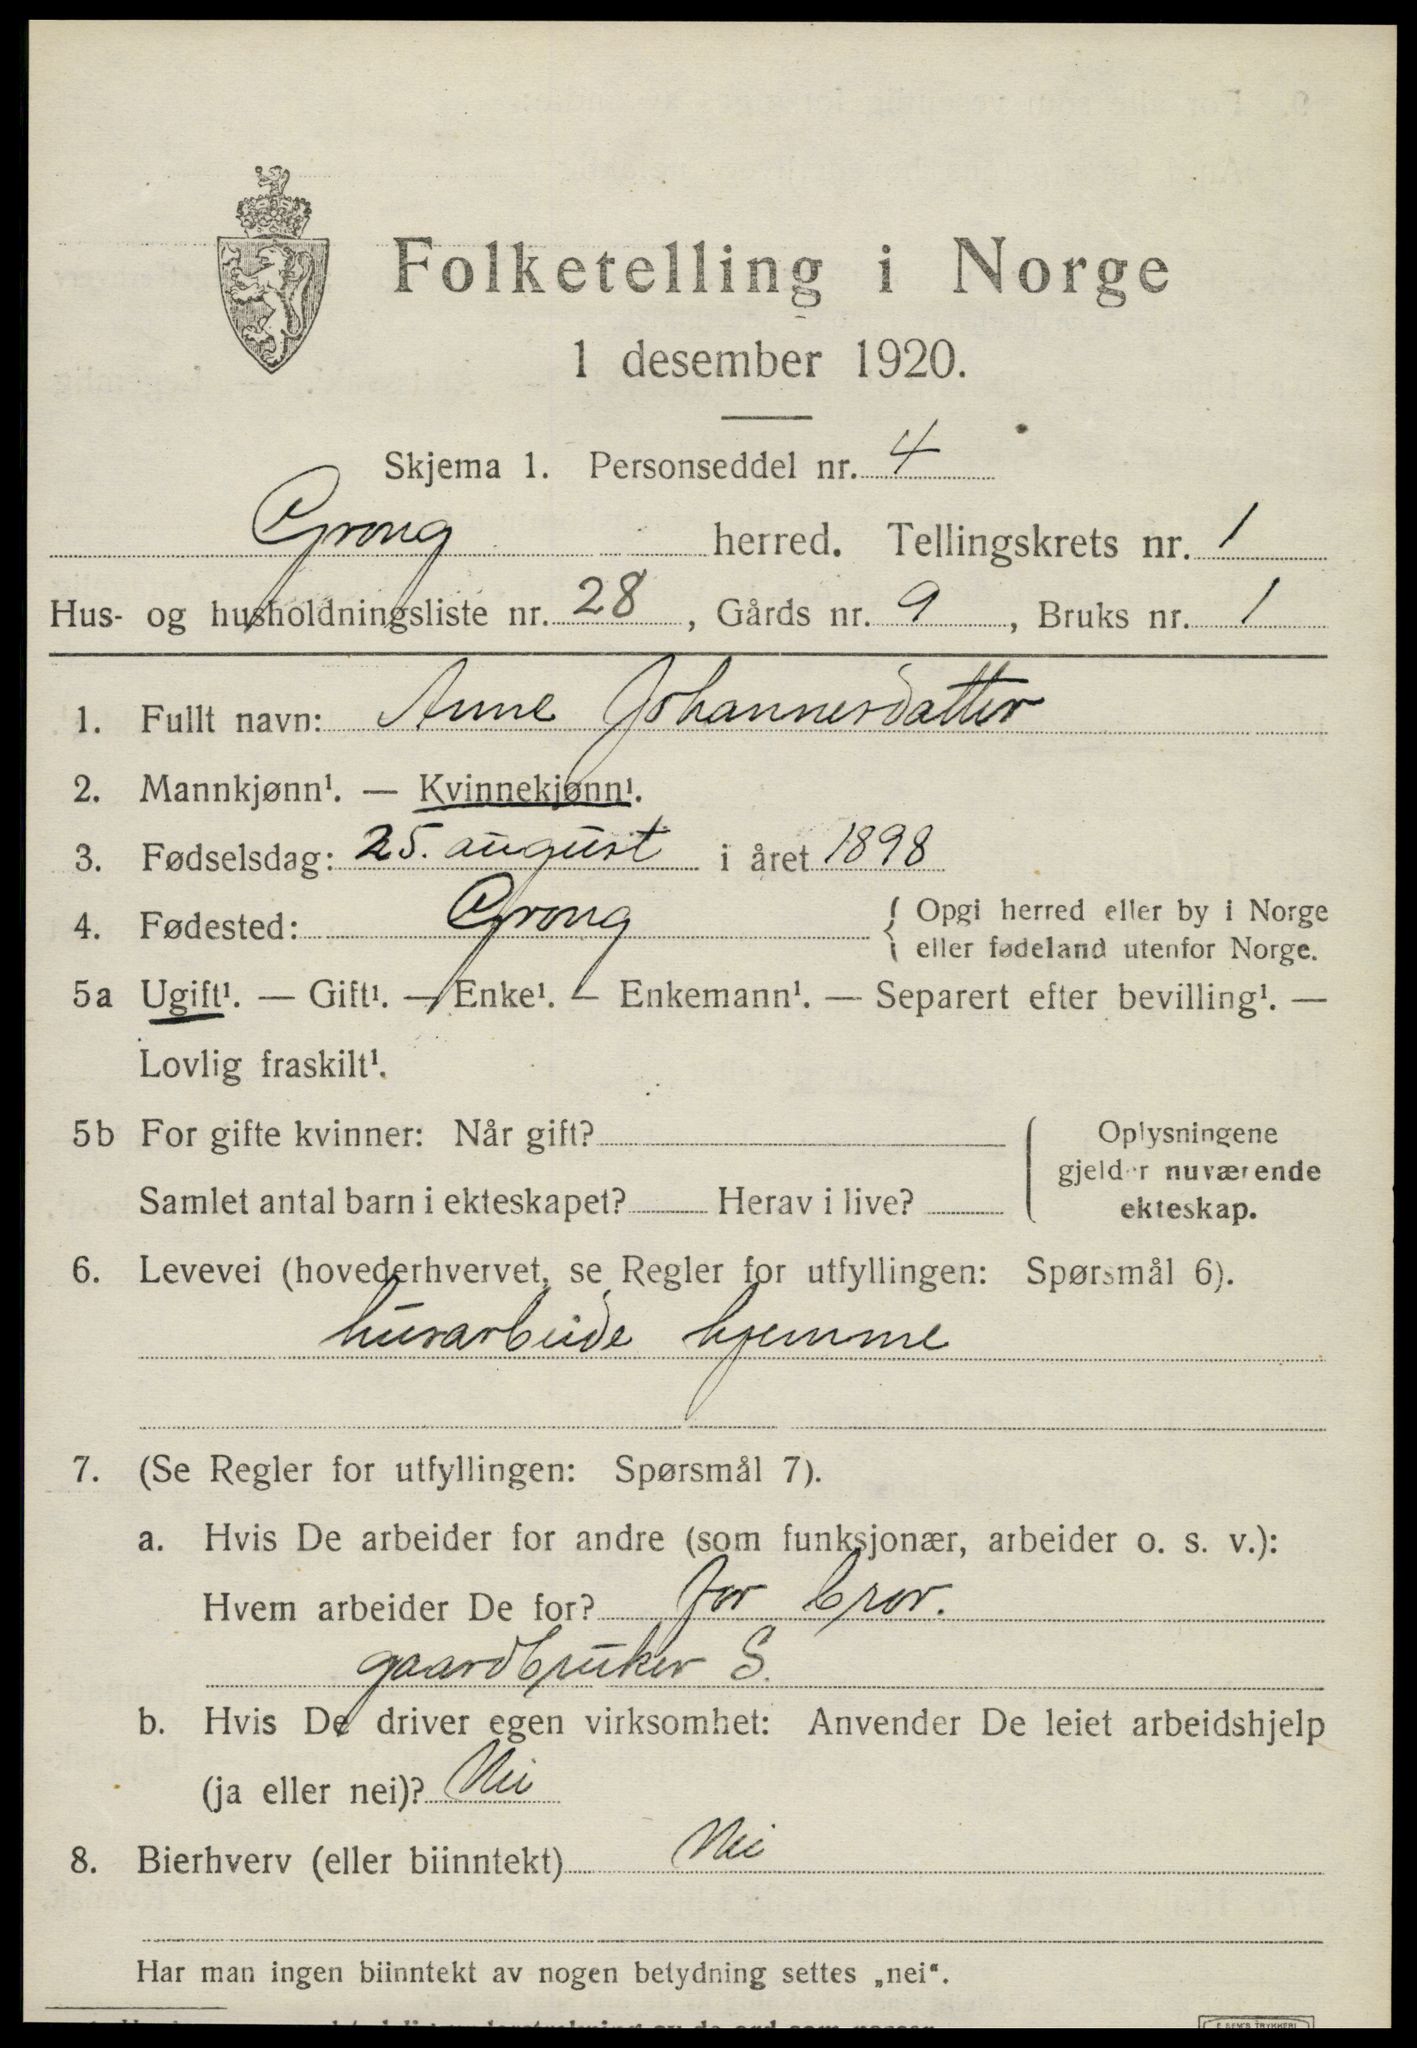 Folketelling i Norge
1 desember 1920.
Skjema 1. Personseddel nr. 4
Grong herred. Tellingskrets nr. 1
Hus- og husholdningsliste nr. 28, Gårds nr. 9, Bruks nr. 1
1. Fullt navn: Anne Johannesdatter
2. Mannkjønn¹. — Kvinnekjønn¹.
3. Fødselsdag: 25. august i året 1898
4. Fødested: Grong { Opgi herred eller by i Norge
eller fødeland utenfor Norge.
5a Ugift¹. — Gift¹. — Enke¹. — Enkemann¹. — Separert efter bevilling¹. —
Lovlig fraskilt¹.
5b For gifte kvinner: Når gift?
Samlet antal barn i ekteskapet? Herav i live?
Oplysningene
gjelder nuværende
ekteskap.
6. Levevei (hovederhvervet, se Regler for utfyllingen: Spørsmål 6).
husarbeide hjemme
7. (Se Regler for utfyllingen: Spørsmål 7).
a. Hvis De arbeider for andre (som funksjonær, arbeider o. s. v.):
Hvem arbeider De for? for bror.
gaardbruker S.
b. Hvis De driver egen virksomhet: Anvender De leiet arbeidshjelp
(ja eller nei)? Nei
8. Bierhverv (eller biinntekt) Nei
Har man ingen biinntekt av nogen betydning settes „nei“.